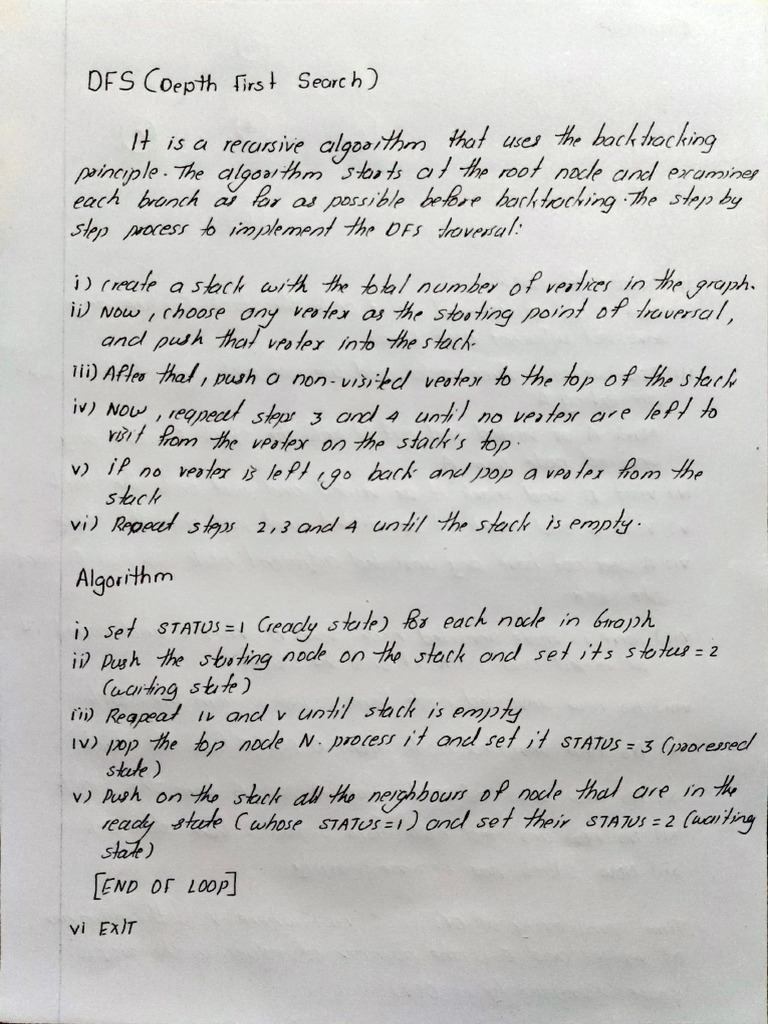 DFS (Depth First Search)
It is a recursive algorithm that uses the backtracking
principle. The algorithm starts at the root node and examines
each branch as far as possible before backtracking. The step by
step process to implement the DFS traversal:
i) create a stack with the total number of vertices in the graph.
ii) Now, choose any vertex as the starting point of traversal,
and push that vertex into the stack.
iii) After that, push a non-visited vertex to the top of the stack
iv) Now, reapeat steps 3 and 4 until no vertex are left to
visit from the vertex on the stack's top.
v) if no vertex is left, go back and pop a vertex from the
stack
vi) Repeat steps 2, 3 and 4 until the stack is empty.
Algorithm
i) set STATUS = 1 (ready state) for each node in Graph
ii) Push the starting node on the stack and set its status = 2
(waiting state)
iii) Reapeat iv and v until stack is empty
iv) pop the top node N. process it and set it STATUS = 3 (processed
state)
v) Push on the stack all the neighbours of node that are in the
ready state (whose STATUS=1) and set their STATUS = 2 (waiting
state)
[END OF LOOP]
vi EXIT